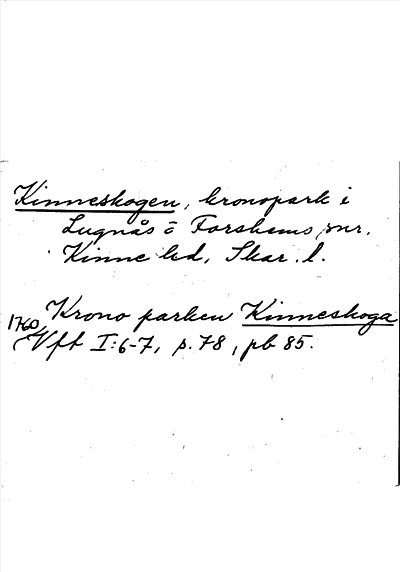 Kinneskogen, kronopark i
Lugnås o Forshems snr,
Kinne hd, Skar. l.
Krono parken Kinneskoga
1760 Vft I:6-7, p. 78, pb 85.